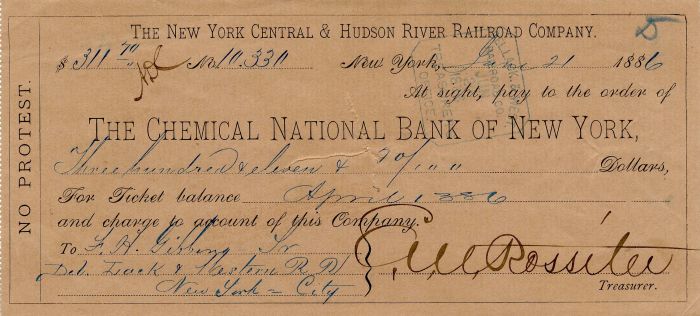 THE NEW YORK CENTRAL & HUDSON RIVER RAILROAD COMPANY.
$311 70/" No. 10.330 New York, June 21 1886
At sight, pay to the order of
THE CHEMICAL NATIONAL BANK OF NEW YORK,
Three hundred & eleven & 70/"" Dollars,
For Ticket balance April 1886
and charge to account of this Company.
To F. H. Jr
Del. Lack & Western R R
New York - City
E. V. W. Rossiter
Treasurer.
NO PROTEST.